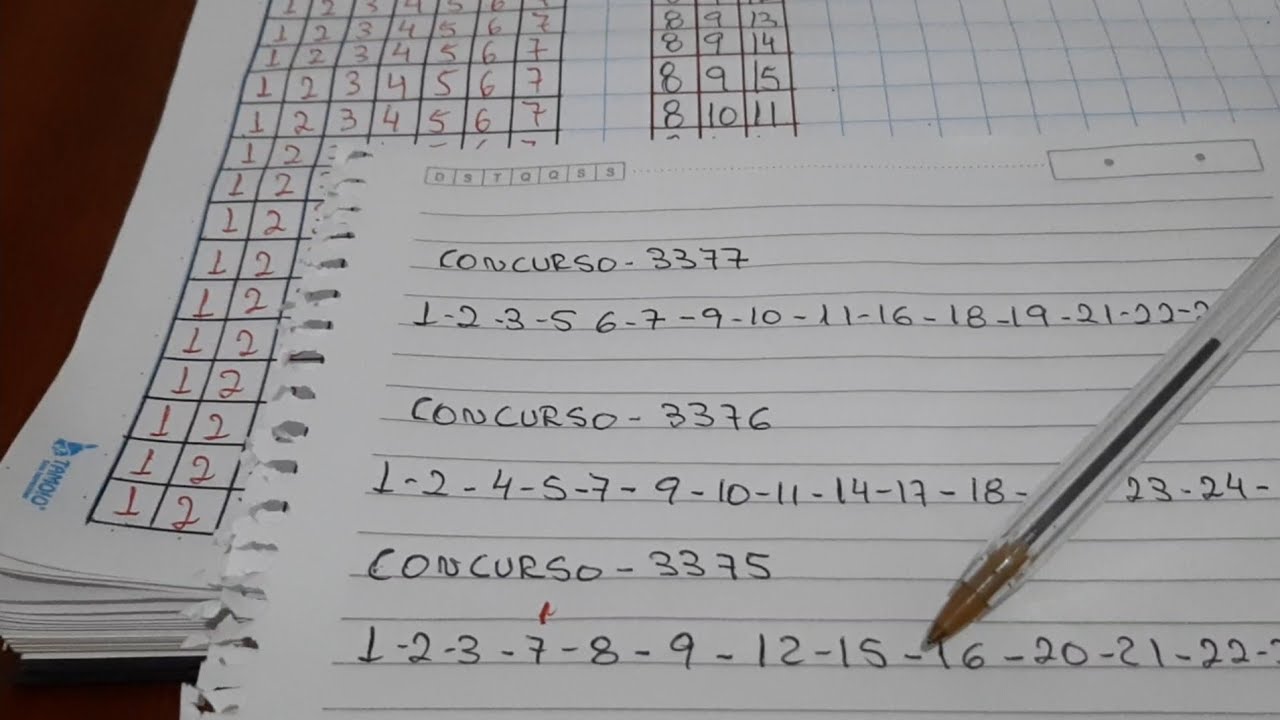 1 2 3 4 5 6
1 2 3 4 5 6 7
1 2 3 4 5 6 7
1 2 3 4 5 6 7
1 2 3 4 5 6 7
1 2
1 2
1 2
1 2
1 2
1 2
1 2
1 2
1 2
1 2
8 9 13
8 9 14
8 9 15
8 10 11
TAMOIO
D S T Q Q S S
CONCURSO - 3377
1-2-3-5 6-7-9-10-11-16-18-19-21-22-2
CONCURSO - 3376
1-2-4-5-7-9-10-11-14-17-18- 23-24-
CONCURSO - 3375
1-2-3-7-8-9-12-15-16-20-21-22-